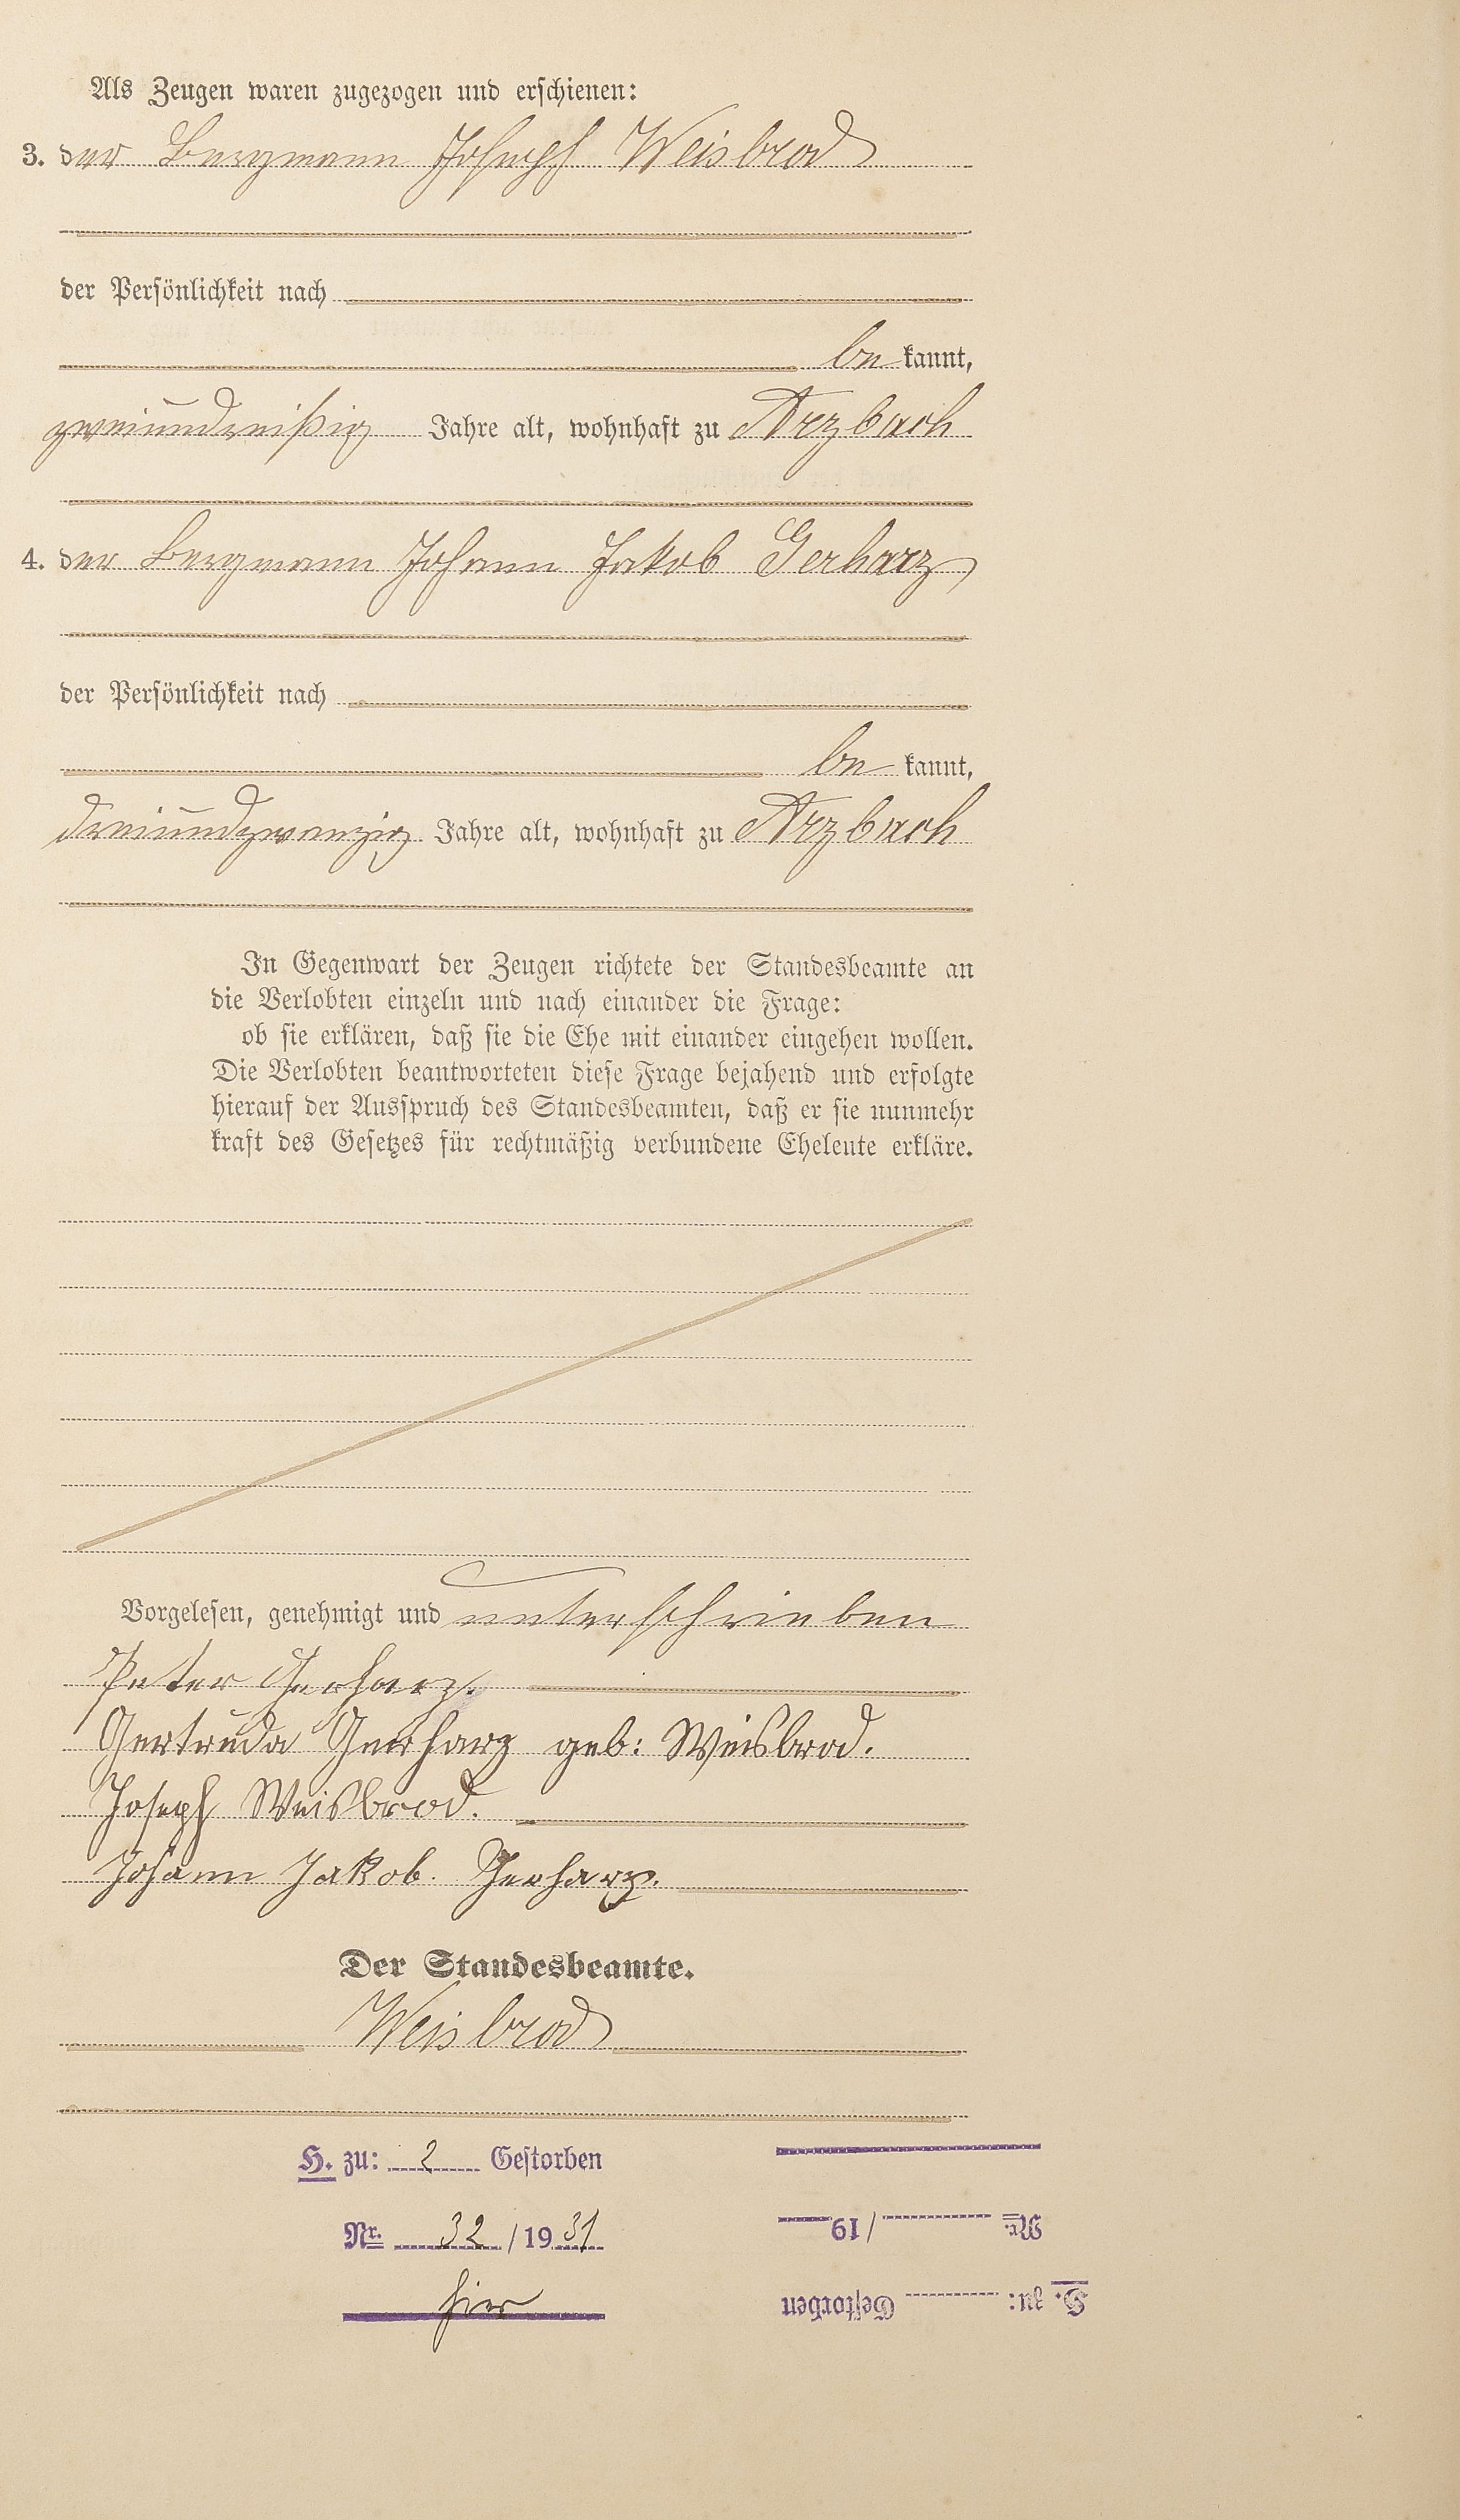 Als Zeugen waren zugezogen und erschienen:
3. der Bergmann Joseph Weisbrod
der Persönlichkeit nach
be kannt,
zweiunddreißig Jahre alt, wohnhaft zu Arzbach
4. der Bergmann Johann Jakob Gerharz
der Persönlichkeit nach
be kannt,
dreiundzwanzig Jahre alt, wohnhaft zu Arzbach
In Gegenwart der Zeugen richtete der Standesbeamte an
die Verlobten einzeln und nach einander die Frage:
ob sie erklären, daß sie die Ehe mit einander eingehen wollen.
Die Verlobten beantworteten diese Frage bejahend und erfolgte
hierauf der Ausspruch des Standesbeamten, daß er sie nunmehr
kraft des Gesetzes für rechtmäßig verbundene Eheleute erkläre.
Vorgelesen, genehmigt und unterschrieben
Peter Gerharz.
Gertruda Gerharz geb: Weisbrod.
Joseph Weisbrod.
Johann Jakob. Gerharz.
Der Standesbeamte.
Weisbrod
H. zu: 2 Gestorben
Nr. 32 / 19 31
hier
H. zu: Gestorben
Nr. /19